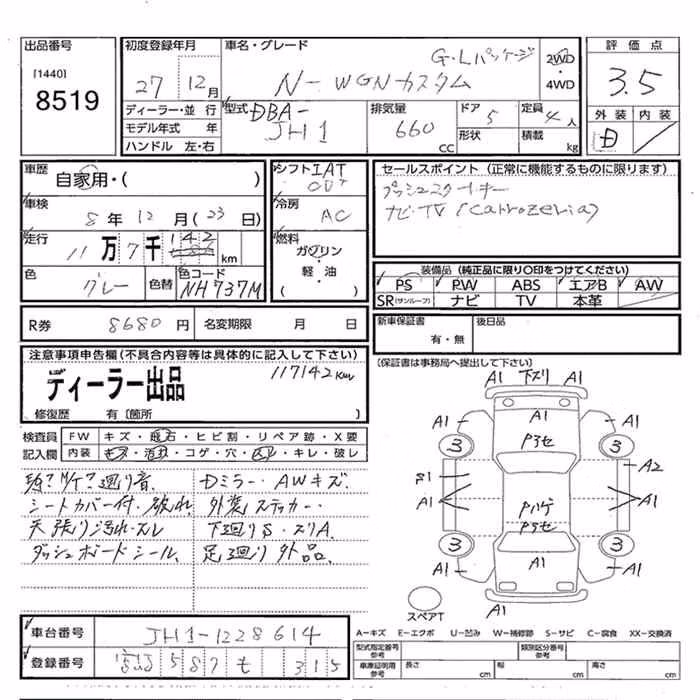 出品番号
[1440]
8519
初度登録年月
27 12月
車名・グレード
G・Lパッケージ
N-WGNカスタム
2WD
・
4WD
評価点
3.5
外装 内装
D
ディーラー・並行
モデル年式 年
ハンドル 左・右
型式 DBA-
JH1
排気量
660
CC
ドア 5
形状
定員 4人
積載 kg
車歴
自家用・( )
車検
8年12月(23日)
走行
11万7千142km
色
グレー
色替
色コード
NH737M
シフト IAT
CVT
冷房
AC
燃料
ガソリン
・
軽・油
( )
セールスポイント (正常に機能するものに限ります)
プッシュスタートキー
ナビ・TV (carrozeria)
装備品 (純正品に限り○印をつけてください)
PS PW ABS エアB AW
SR(サンルーフ) ナビ TV 本革
R券 8680円 名変期限 月 日
新車保証書
有・無
後日品
(保証書は事務局へ提出して下さい)
注意事項申告欄 (不具合内容等は具体的に記入して下さい)
ディーラー出品
117142km
修復歴 有 〔箇所 〕
検査員
記入欄
FW キズ・飛石・ヒビ割・リペア跡・X要
内装 キズ・汚れ・コゲ・穴・スレ・キレ・破レ
シートカバー付・破れ
天張り汚れ・スレ
ダッシュボードシール
Dミラー・AWキズ
外装ステッカー
下廻りS・スリA
足廻り外品
A1 下スリ A1
A1 A1 A1
3 Pスセ 3
S1 A2
A1 Pハゲ A1
Pスセ
3 3
A1 A1 A1
A1 A1
スペアT
車台番号 JH1-1228614
登録番号 587 も 315
A-キズ E-エクボ U-凹み W-補修跡 S-サビ C-腐食 XX-交換済
型式指定番号
参考
類別区分番号
参考
車庫証明用
参考
長さ cm
幅 cm
高さ cm